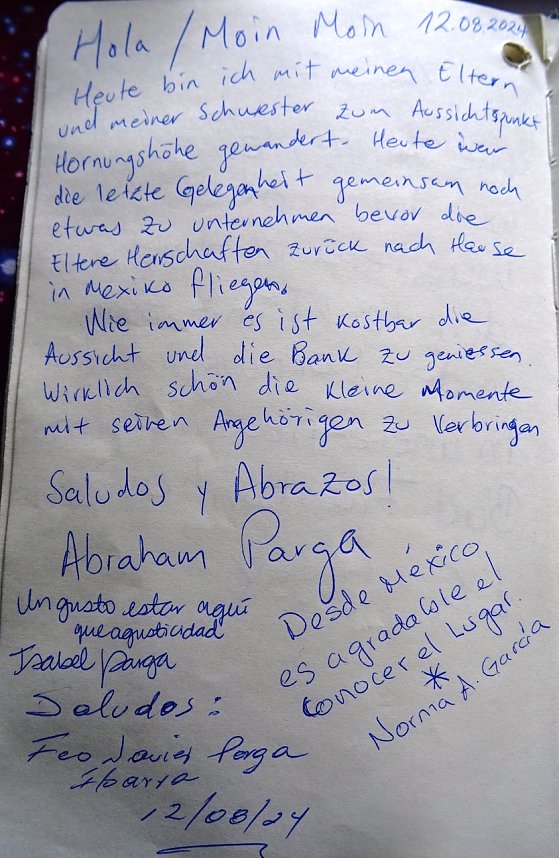 Hola / Moin Moin 12.08.2024
Heute bin ich mit meinen Eltern
und meiner Schwester zum Aussichtspunkt
Hornungshöhe gewandert. Heute war
die letzte Gelegenheit gemeinsam noch
etwas zu unternehmen bevor die
Eltere Herrschaften zurück nach Hause
in Mexiko fliegen.
Wie immer es ist kostbar die
Aussicht und die Bank zu geniessen.
Wirklich schön die kleine Momente
mit seinen Angehörigen zu verbringen
Saludos y Abrazos!
Abraham Parga
Un gusto estar aquí
que
Isabel Parga
Desde México,
es agradable el
conocer el lugar.
*
Norma A. García
Saludos:
Fco Javier Parga
Ibarra
12/08/24